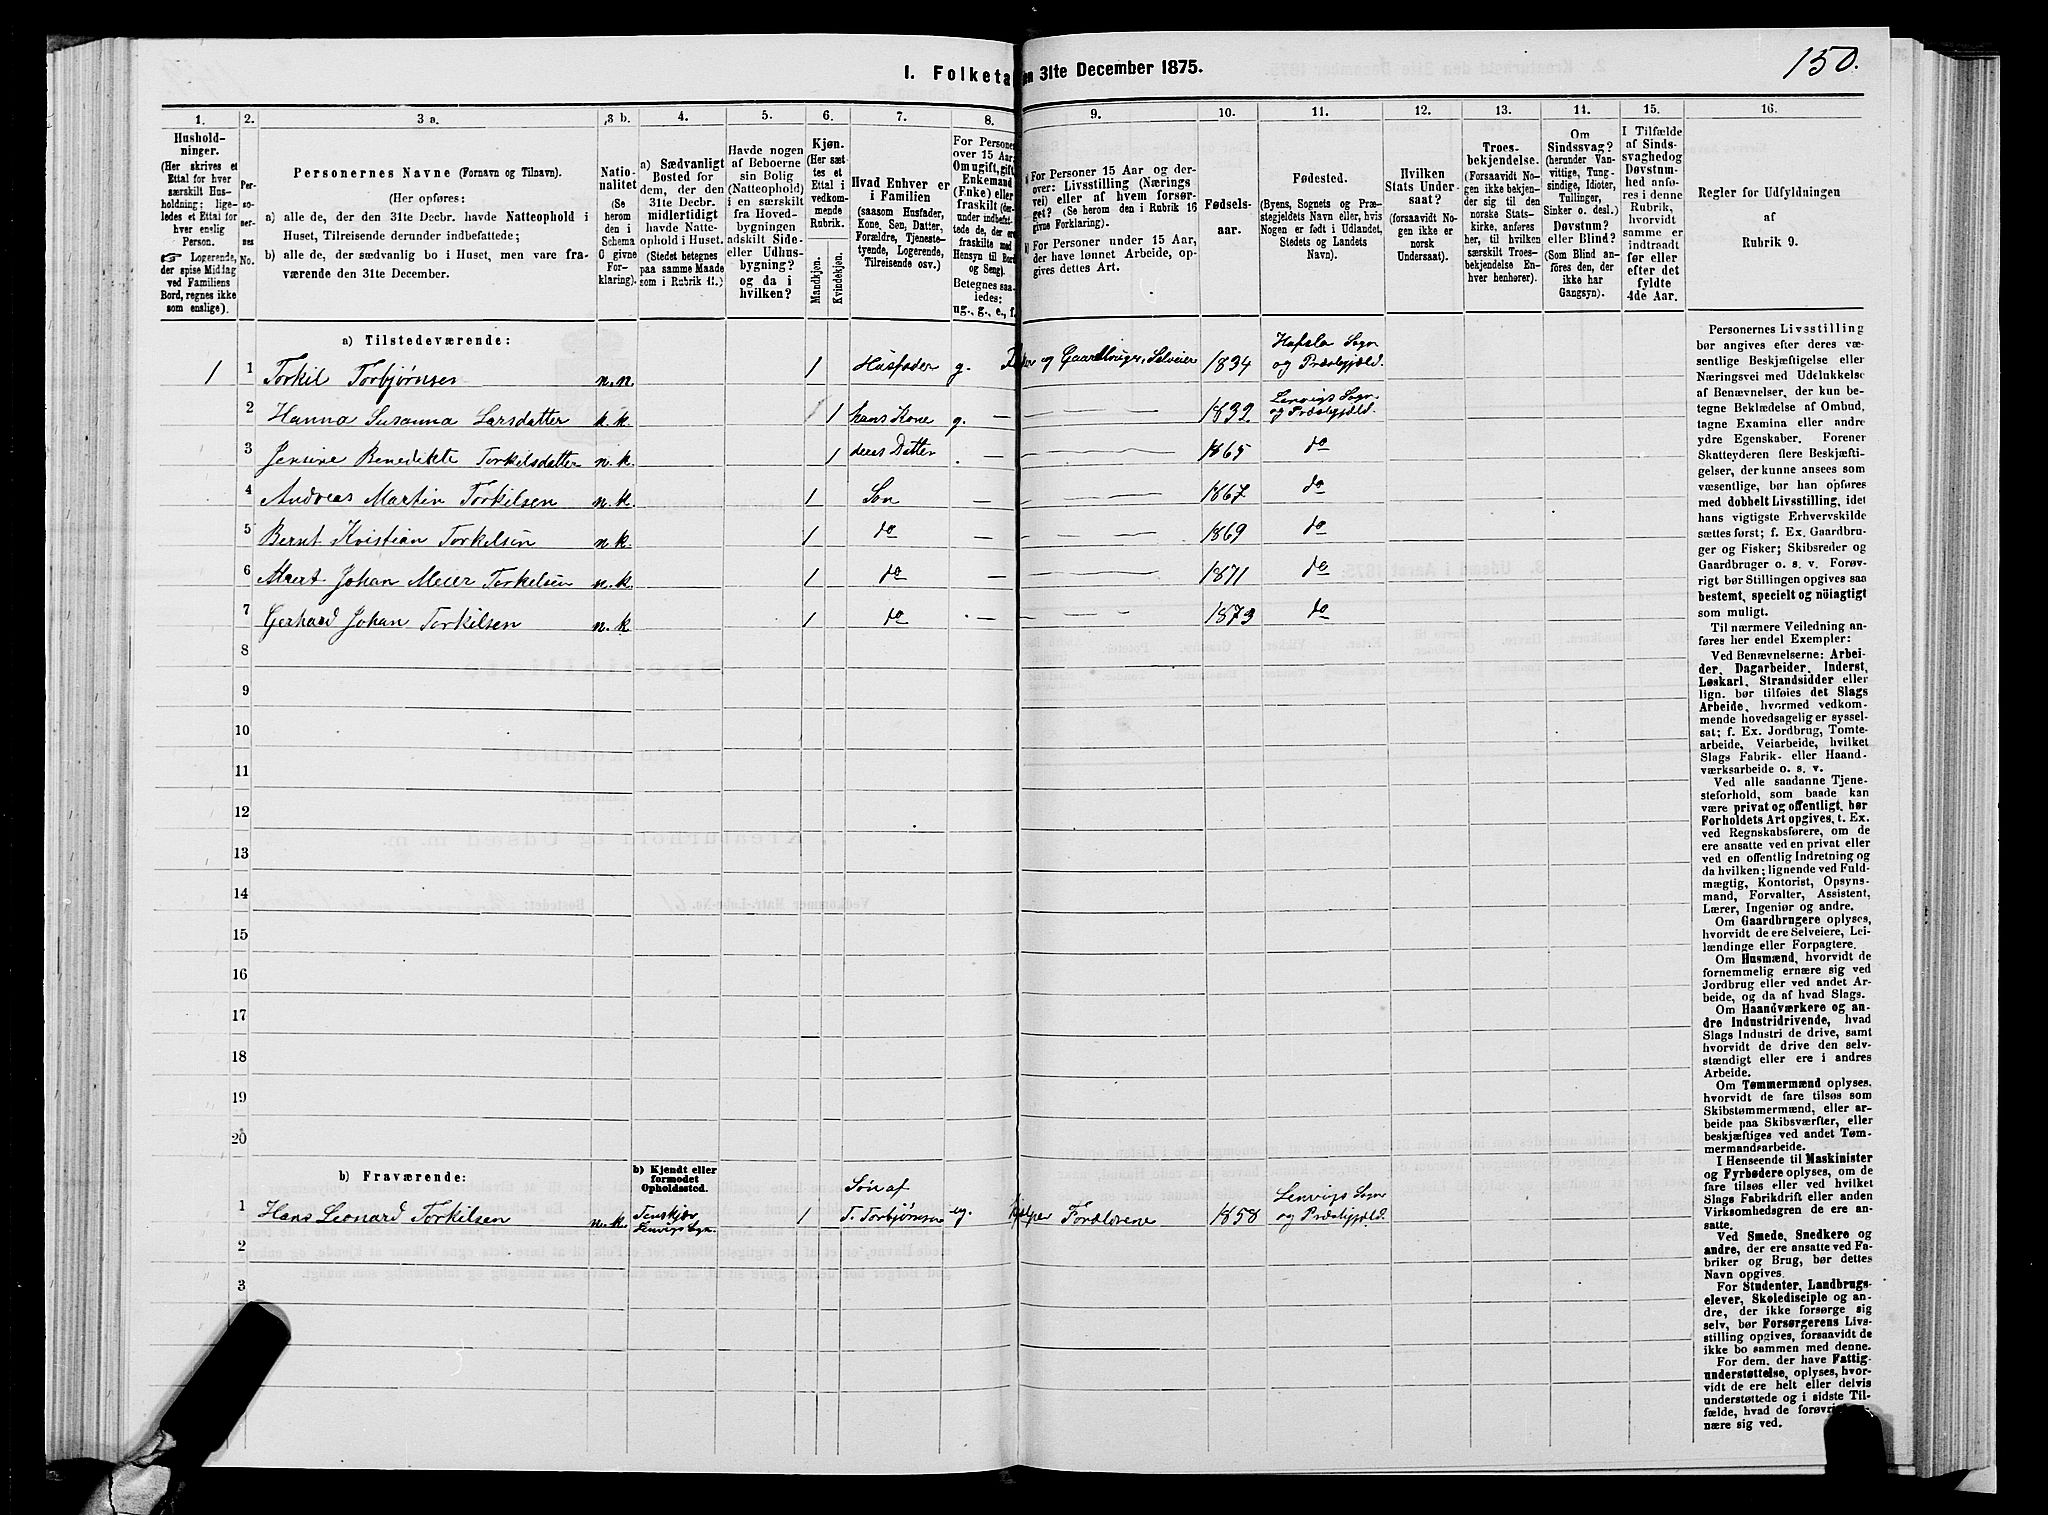 150.
I. Folketa en 31te December 1875.
1. 2. 3 a. 3 b. 4. 5. 6. 7. 8. 9. 10. 11. 12. 13. 14. 15. 16.
Hushold-
ninger.
(Her skrives et
Ettal for hver
særskilt Hus-
holdning; lige-
ledes et Ettal for
hver enslig
Person.
☞ Logerende,
der spise Middag
ved Familiens
Bord, regnes ikke
som enslige).
Per-
so-
ner-
nes
No.
Personernes Navne (Fornavn og Tilnavn).
(Her opføres:
a) alle de, der den 31te Decbr. havde Natteophold i
Huset, Tilreisende derunder indbefattede;
b) alle de, der sædvanlig bo i Huset, men vare fra-
værende den 31te December.)
Natio-
nalitet
(Se
herom
den i
Schema
C givne
For-
klaring).
a) Sædvanligt
Bosted for
dem, der den
31te Decbr.
midlertidigt
havde Natte-
ophold i Huset.
(Stedet betegnes
paa samme Maade
som i Rubrik 11.)
Havde nogen
af Beboerne
sin Bolig
(Natteophold)
i en særskilt
fra Hoved-
bygningen
adskilt Side-
eller Udhus-
bygning?
og da i
hvilken?
Kjøn.
(Her sæt-
tes et
Ettal i
vedkom-
mende
Rubrik.
Mandkjøn.
Kvindekjøn.
Hvad Enhver er
i Familien
(saasom Husfader,
Kone, Søn, Datter,
Forældre, Tjeneste-
tyende, Logerende,
Tilreisende osv.)
For Personer
over 15 Aar:
Om ugift, gift,
Enkemand
(Enke) eller
fraskilt (der-
under indbefat-
tede de, der ere
fraskilte med
Hensyn til Bord
og Seng).
Betegnes saa-
ledes:
ug., g., e., f.
a) For Personer 15 Aar og der-
over: Livsstilling (Nærings-
vei) eller af hvem forsør-
get? (Se herom den i Rubrik 16
givne Forklaring).
b) For Personer under 15 Aar,
der have lønnet Arbeide, op-
gives dettes Art.
Fødsels-
aar.
Fødested.
(Byens, Sognets og Præ-
stegjeldets Navn eller, hvis
Nogen er født i Udlandet,
Stedets og Landets
Navn).
Hvilken
Stats Under-
saat?
(forsaavidt No-
gen ikke er
norsk
Undersaat).
Troes-
bekjendelse.
(Forsaavidt No-
gen ikke bekjen-
der sig til den
norske Stats-
kirke, anføres
her, til hvilken
Troesbe-
kjendelse En-
hver henhører).
Om
Sindssvag?
(herunder Van-
vittige, Tung-
sindige, Idioter,
Tullinger,
Sinker o. desl.)
Døvstum?
eller Blind?
(Som Blind an-
føres den, der
ikke har
Gangsyn).
I Tilfælde
af Sinds-
svaghed og
Døvstum-
hed anfø-
res i denne
Rubrik,
hvorvidt
samme er
indtraadt
før eller
efter det
fyldte
4de Aar.
Regler for Udfyldningen
af
Rubrik 9.
a) Tilstedeværende:
1 1 Torkil Torbjørnsen n.n. 1 Husfader g. og Gaardbruger, Selveier 1834 Hafslo Sogn og Præstegjæld.
2 Hanna Susanna Larsdatter k.k. 1 hans Kone g. — 1832 Lenvigs Sogn og Præstegjæld.
3 Jensine Benedikte Torkilsdatter n.k. 1 deres Datter — 1865 do
4 Andreas Martin Torkilsen n.k. 1 Søn — 1867 do
5 Bernt Kristian Torkilsen n.k. 1 do — 1869 do
6 Johan Meier Torkilsen n.k. 1 do — 1871 do
7 Gerhard Johan Torkilsen n.k. 1 do — 1873 do
8
9
10
11
12
13
14
15
16
17
18
19
20
b) Fraværende:
b) Kjendt eller
formodet
Opholdssted.
1 Hans Leonard Torkilsen n.k. Lenvigs Sogn. 1 Søn af T. Torbjørnsen ug. Hjelper Forældrene 1858 Lenvigs Sogn og Præstegjæld.
2
3
Personernes Livsstilling
bør angives efter deres væ-
sentlige Beskjæftigelse eller
Næringsvei med Udelukkelse
af Benævnelser, der kun be-
tegne Beklædelse af Ombud,
tagne Examina eller andre
ydre Egenskaber. Forener
Skatteyderen flere Beskjæfti-
gelser, der kunne ansees som
væsentlige, bør han opføres
med dobbelt Livsstilling, idet
hans vigtigste Erhvervskilde
sættes først; f. Ex. Gaardbru-
ger og Fisker; Skibsreder og
Gaardbruger o. s. v. Forøv-
rigt bør Stillingen opgives saa
bestemt, specielt og nöiagtigt
som muligt.
Til nærmere Veiledning an-
føres her endel Exempler:
Ved Benævnelserne: Arbei-
der, Dagarbeider, Inderst,
Løskarl, Strandsidder eller
lign. bør tilføies det Slags
Arbeide, hvormed vedkom-
mende hovedsagelig er syssel-
sat; f. Ex. Jordbrug, Tomte-
arbeide, Veiarbeide, hvilket
Slags Fabrik- eller Haand-
værksarbeide o. s. v.
Ved alle saadanne Tjene-
steforhold, som baade kan
være privat og offentligt, bør
Forholdets Art opgives, t. Ex.
ved Regnskabsførere, om de
ere ansatte ved en privat eller
ved en offentlig Indretning og
da hvilken; lignende ved Fuld-
mægtig, Kontorist, Opsyns-
mand, Forvalter, Assistent,
Lærer, Ingeniør og andre.
Om Gaardbrugere oplyses,
hvorvidt de ere Selveiere, Lei-
lændinge eller Forpagtere.
Om Husmænd, hvorvidt de
fornemmelig ernære sig ved
Jordbrug eller ved andet Ar-
beide, og da af hvad Slags.
Om Haandværkere og an-
dre Industridrivende, hvad
Slags Industri de drive, samt
hvorvidt de drive den selv-
stændigt eller ere i andres
Arbeide.
Om Tømmermænd oplyses,
hvorvidt de fare tilsøs som
Skibstømmermænd, eller ar-
beide paa Skibsværfter, eller
beskjæftiges ved andet Tøm-
mermandsarbeide.
I Henseende til Maskinister
og Fyrbødere oplyses, om de
fare tilsøs eller ved hvilket
Slags Fabrikdrift eller anden
Virksomhedsgren de ere an-
satte.
Ved Smede, Snedkere og
andre, der ere ansatte ved Fa-
briker og Brug, bør dettes
Navn opgives.
For Studenter, Landbrugs-
elever, Skoledisciple og an-
dre, der ikke forsørge sig
selv, bør Forsørgerens Livs-
stilling opgives, forsaavidt de
ikke bo sammen med denne.
For dem, der have Fattig-
understøttelse, oplyses, hvor-
vidt de ere helt eller delvis
understøttede og i sidste Til-
fælde, hvad de forøvri
nære sig ved.